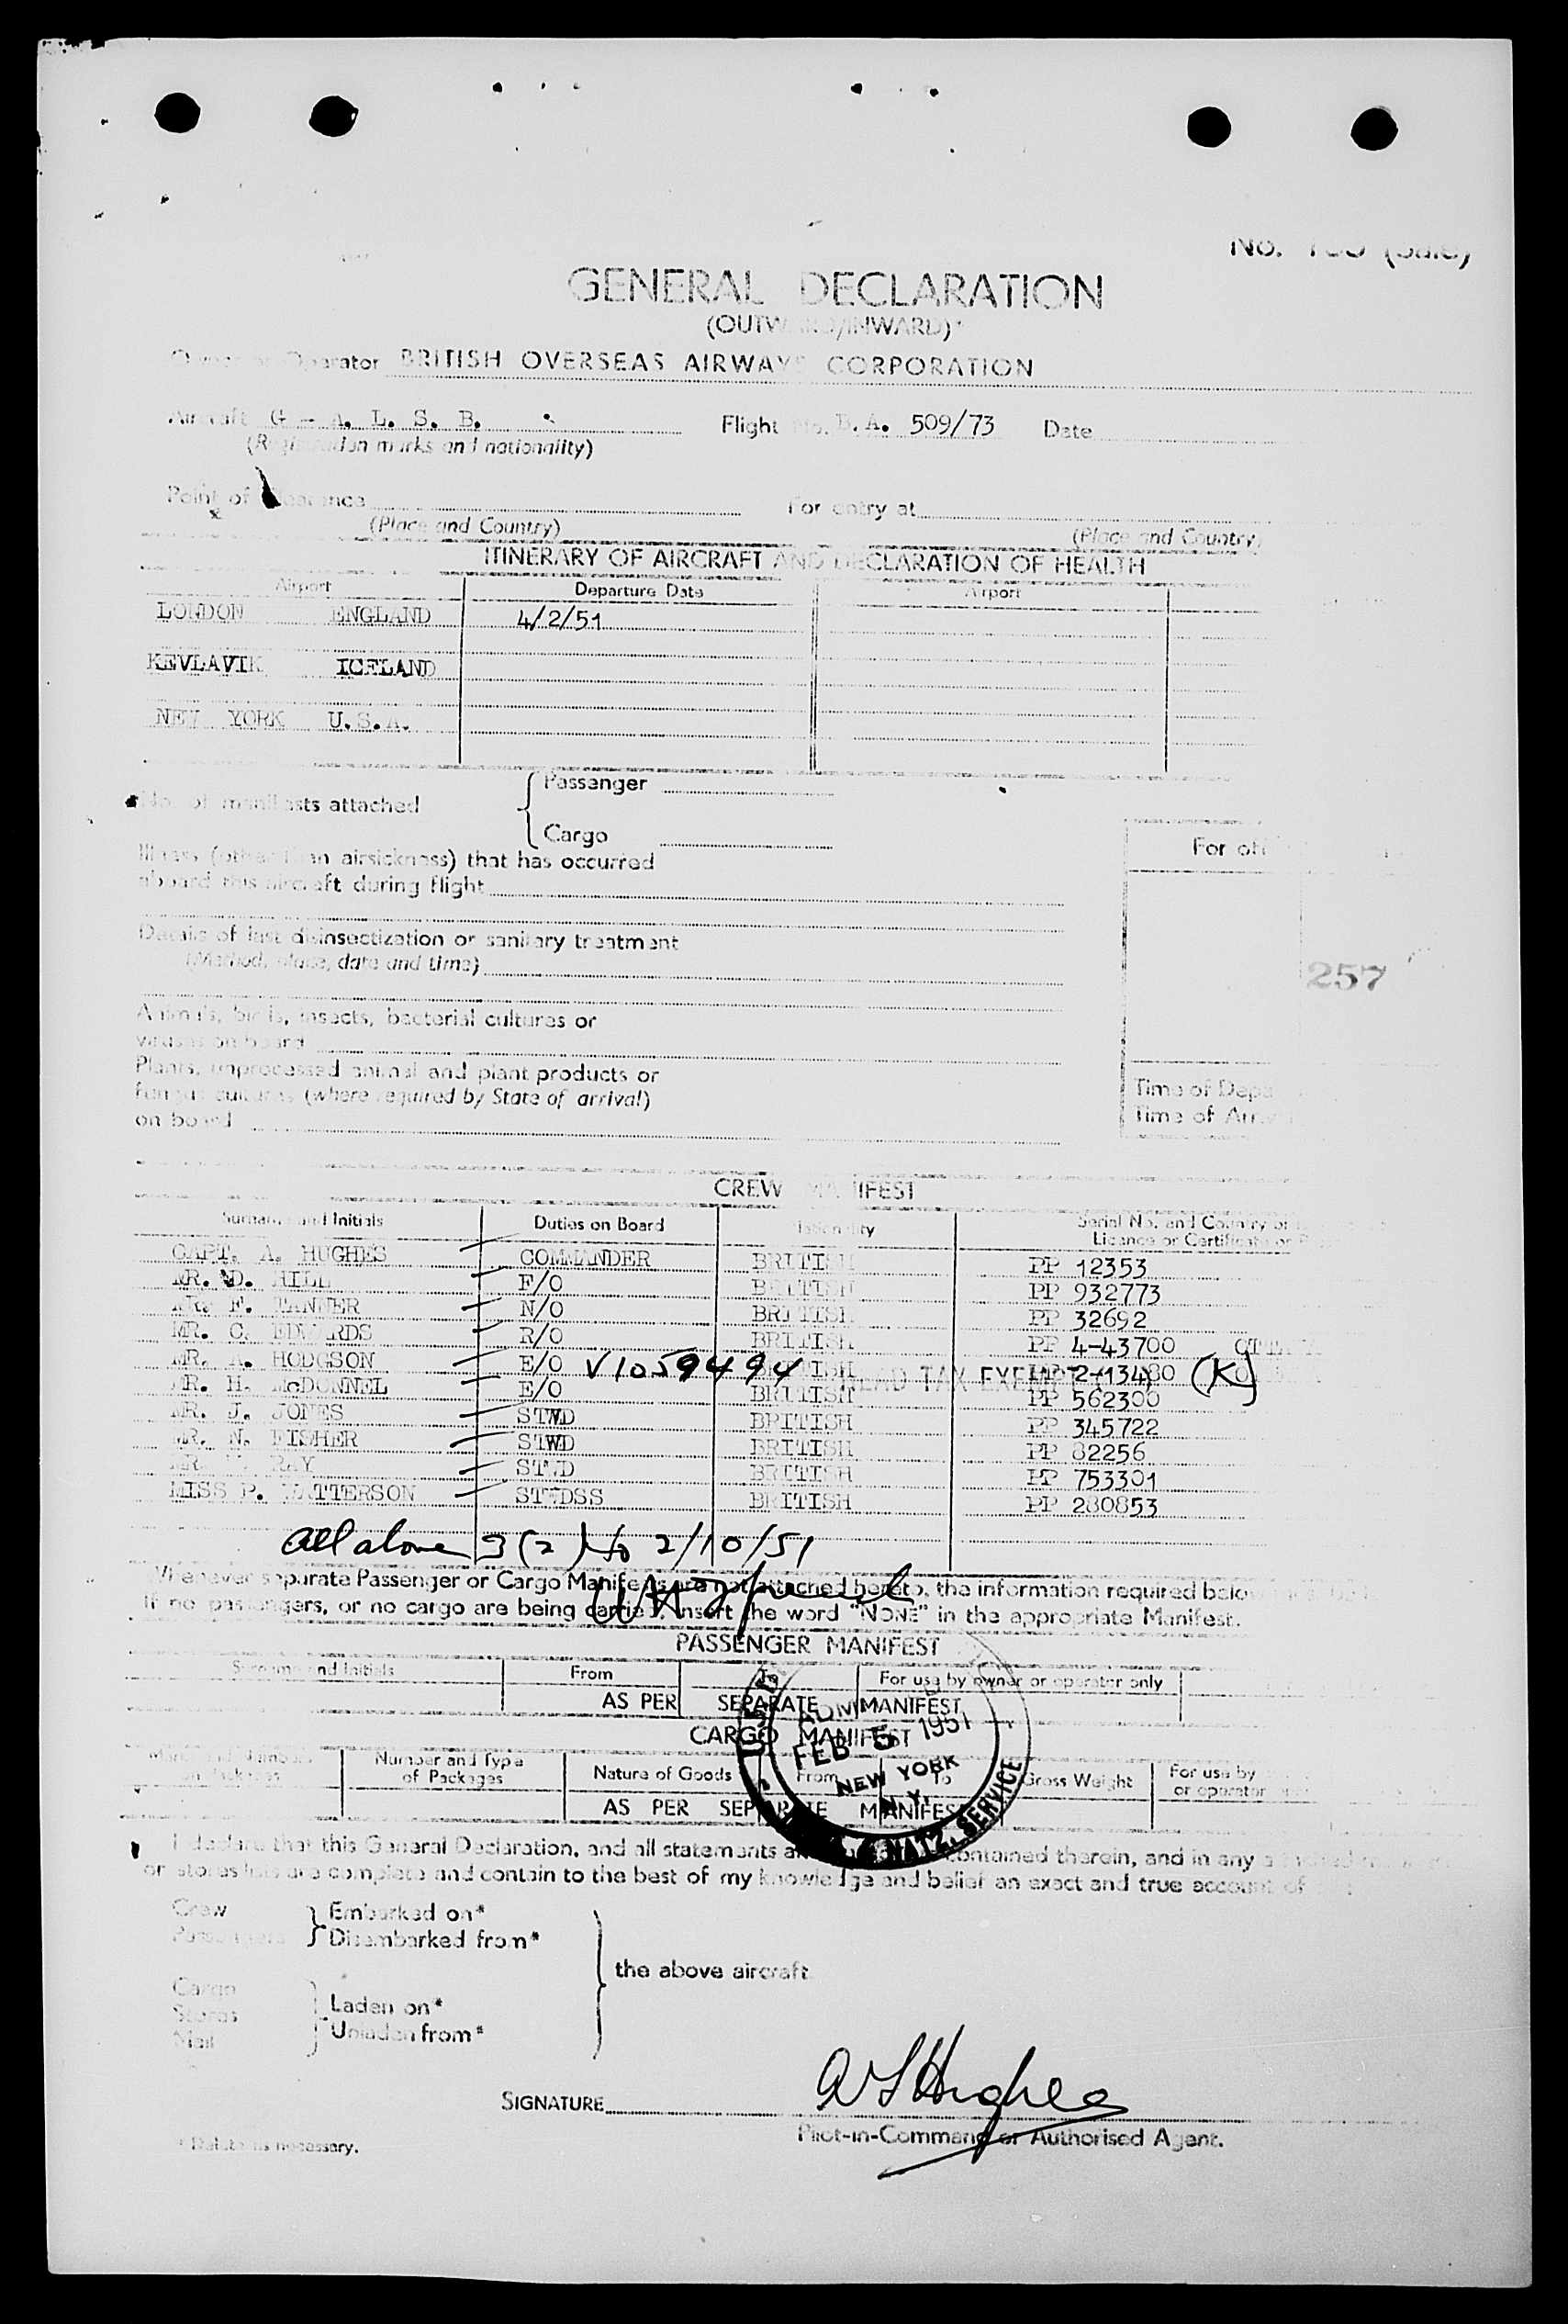 GENERAL DECLARATION
(OUTWARD/INWARD)*
Operator BRITISH OVERSEAS AIRWAYS CORPORATION
Aircraft G - A. L. S. B. Flight No. B.A. 509/73 Date
(Registration marks and nationality)
Point of Clearance For entry at
(Place and Country) (Place and Country)
ITINERARY OF AIRCRAFT AND DECLARATION OF HEALTH
Airport Departure Date Airport
LONDON ENGLAND 4/2/51
KEVLAVIK ICELAND
NEW YORK U.S.A.
No. of manifests attached
Passenger
Cargo
For
Illness (other than airsickness) that has occurred
aboard this aircraft during flight
Details of last disinsectization or sanitary treatment
(Method, place, date and time)
257
Animals, birds, insects, bacterial cultures or
viruses on board
Plants, unprocessed animal and plant products or
fungus cultures (where required by State of arrival)
on board
Time of
Time of
CREW MANIFEST
Surname and Initials Duties on Board Nationality Serial No. and Country of
Licence or Certificate or
CAPT. A. HUGHES COMMANDER BRITISH PP 12353
MR. D. HILL F/O BRITISH PP 932773
MR. F. TANNER N/O BRITISH PP 32692
MR. C. EDWARDS R/O BRITISH PP 4-43700
MR. A. HODGSON E/O V1059494 BRITISH HEAD TAX EXEMPT PP 2-13480 (K)
MR. H. McDONNEL E/O BRITISH PP 562300
MR. J. JONES STWD BRITISH PP 345722
MR. N. FISHER STWD BRITISH PP 82256
MR. RAY STWD BRITISH PP 753301
MISS P. MATTERSON STWDSS BRITISH PP 280853
All above 3(2) to 2/10/51
Whenever separate Passenger or Cargo Manifests are not attached hereto, the information required below
If no passengers, or no cargo are being carried, insert the word "NONE" in the appropriate Manifest.
PASSENGER MANIFEST
Surname and Initials From To For use by owner or operator only
AS PER SEPARATE MANIFEST
CARGO MANIFEST
Marks and Numbers on Packages Number and Type of Packages Nature of Goods From To Gross Weight For use by or operator
AS PER SEPARATE MANIFEST
ADMITTED
FEB 5 1951
NEW YORK
N.Y.
NATZ. SERVICE
I declare that this General Declaration, and all statements contained therein, and in any
or stores lists are complete and contain to the best of my knowledge and belief an exact and true account of
Crew
Passengers
Embarked on*
Disembarked from*
the above aircraft
Cargo
Stores
Mail
Laden on*
Unladen from*
SIGNATURE A S Hughes
Pilot-in-Command or Authorised Agent.
* Delete as necessary.